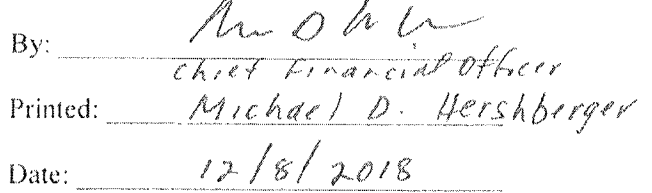 By:
Chief Financial Officer
Printed: Michael D. Hershberger
Date: 12/8/2018